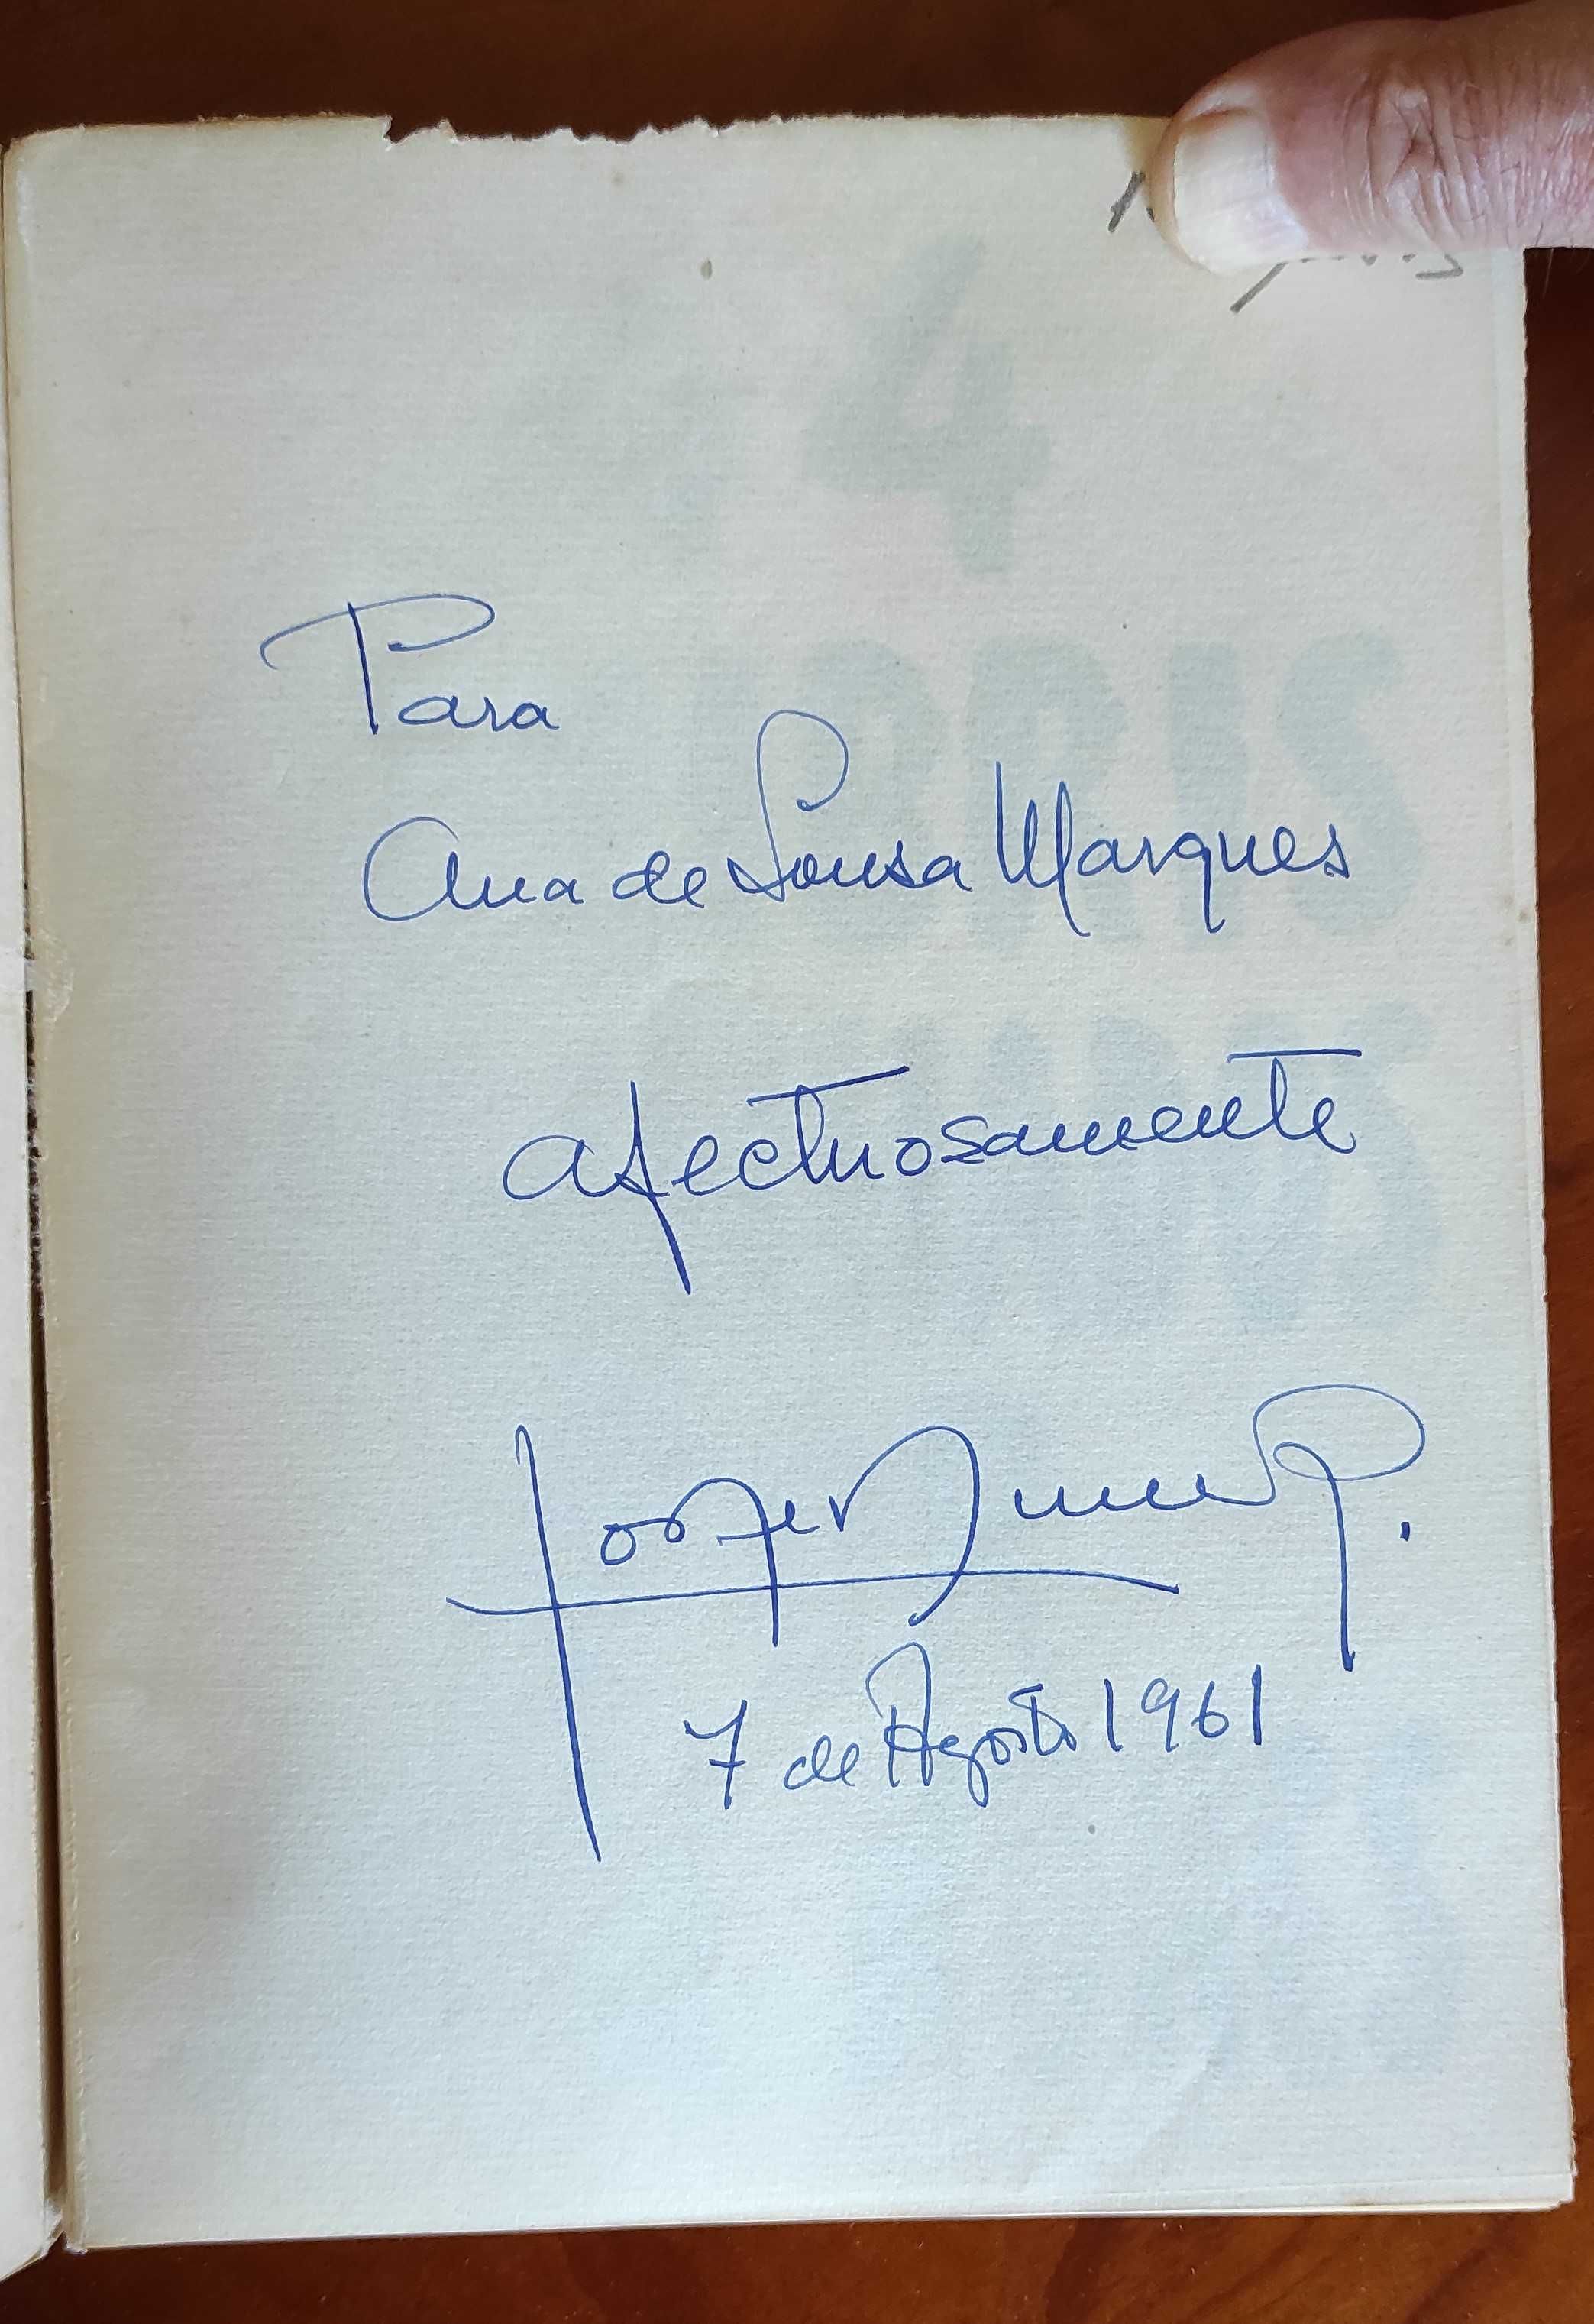 Para
Ana de Sousa Marques
afectuosamente
7 de Agosto 1961